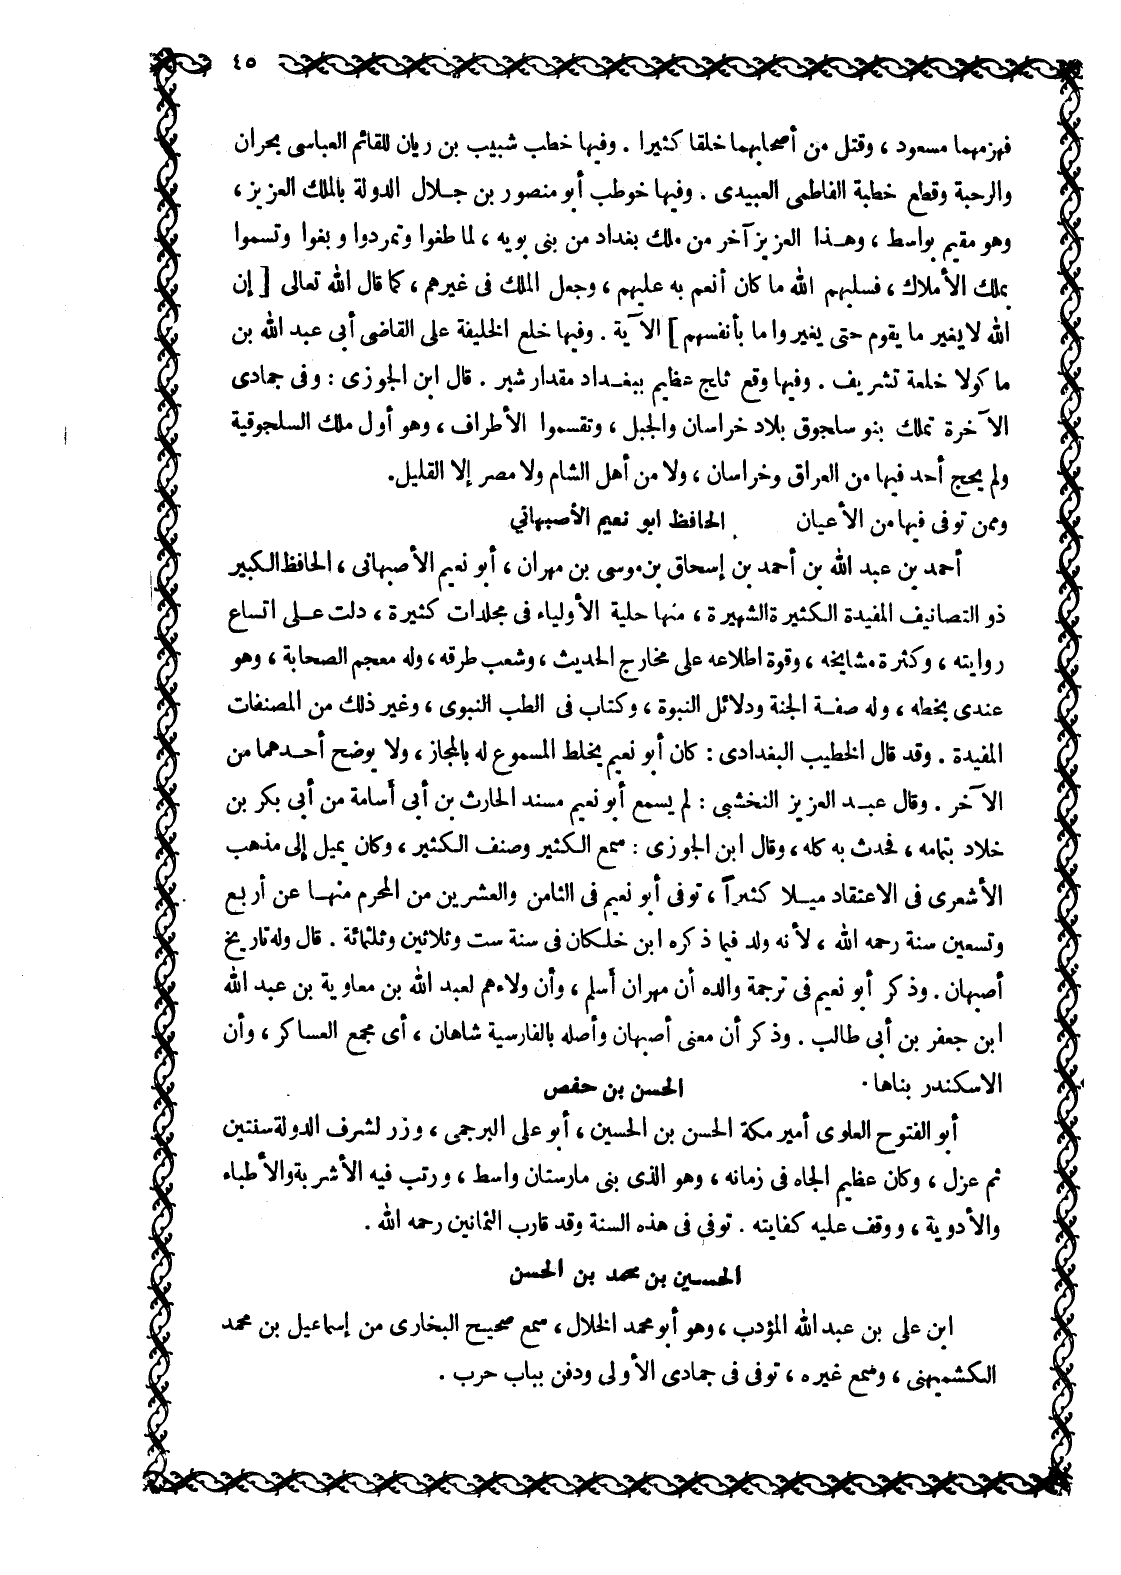 ٤٥
فهزمهما مسعود ، وقتل من أصحابهما خلقا كثيرا . وفيها خطب شبيب بن ريان للقائم العباسى بحران
والرحبة وقطع خطبة الفاطمى العبيدى . وفيها خوطب أبو منصور بن جلال الدولة بالملك العزيز ،
وهو مقيم بواسط ، وهذا العزيز آخر من ملك بغداد من بنى بويه ، لما طغوا وتمردوا وبغوا وتسموا
بملك الأملاك ، فسلبهم الله ما كان أنعم به عليهم ، وجعل الملك فى غيرهم ، كما قال الله تعالى [ إن
الله لا يغير ما بقوم حتى يغيروا ما بأنفسهم ] الآية . وفيها خلع الخليفة على القاضى أبى عبد الله بن
ماكولا خلعة تشريف . وفيها وقع ثلج عظيم ببغداد مقدار شبر . قال ابن الجوزى : وفى جمادى
الآخرة تملك بنو سلجوق بلاد خراسان والجبل ، وتقسموا الأطراف ، وهو أول ملك السلجوقية
ولم يحج أحد فيها من العراق وخراسان ، ولا من أهل الشام ولا مصر إلا القليل.
وممن توفى فيها من الأعيان الحافظ ابو نعيم الأصبهاني
أحمد بن عبد الله بن أحمد بن إسحاق بن موسى بن مهران ، أبو نعيم الأصبهانى ، الحافظ الكبير
ذو التصانيف المفيدة الكثيرة الشهيرة ، منها حلية الأولياء فى مجلدات كثيرة ، دلت على اتساع
روايته ، وكثرة مشايخه ، وقوة اطلاعه على مخارج الحديث ، وشعب طرقه ، وله معجم الصحابة ، وهو
عندى بخطه ، وله صفة الجنة ودلائل النبوة ، وكتاب فى الطب النبوى ، وغير ذلك من المصنفات
المفيدة . وقد قال الخطيب البغدادى : كان أبو نعيم يخلط المسموع له بالمجاز ، ولا يوضح أحدهما من
الآخر . وقال عبد العزيز النخشبى : لم يسمع أبو نعيم مسند الحارث بن أبى أسامة من أبى بكر بن
خلاد بتمامه ، فحدث به كله ، وقال ابن الجوزى : سمع الكثير وصنف الكثير ، وكان يميل إلى مذهب
الأشعرى فى الاعتقاد ميلا كثيراً ، توفى أبو نعيم فى الثامن والعشرين من المحرم منها عن أربع
وتسعين سنة رحمه الله ، لأنه ولد فيما ذكره ابن خلكان فى سنة ست وثلاثين وثلثمائة . قال وله تاريخ
أصبهان . وذكر أبو نعيم فى ترجمة والده أن مهران أسلم ، وأن ولاءهم لعبد الله بن معاوية بن عبد الله
ابن جعفر بن أبى طالب . وذكر أن معنى أصبهان وأصله بالفارسية شاهان ، أى مجمع العساكر ، وأن
الاسكندر بناها . الحسن بن حفص
أبو الفتوح العلوى أمير مكة الحسن بن الحسين ، أبو على البرجمى ، وزر لشرف الدولة سنتين
ثم عزل ، وكان عظيم الجاه فى زمانه ، وهو الذى بنى مارستان واسط ، ورتب فيه الأشربة والأطباء
والأدوية ، ووقف عليه كفايته . توفى فى هذه السنة وقد قارب الثمانين رحمه الله .
الحسين بن محمد بن الحسن
ابن على بن عبد الله المؤدب ، وهو أبو محمد الخلال ، سمع صحيح البخارى من إسماعيل بن محمد
الكشميهنى ، وسمع غيره ، توفى فى جمادى الأولى ودفن بباب حرب .